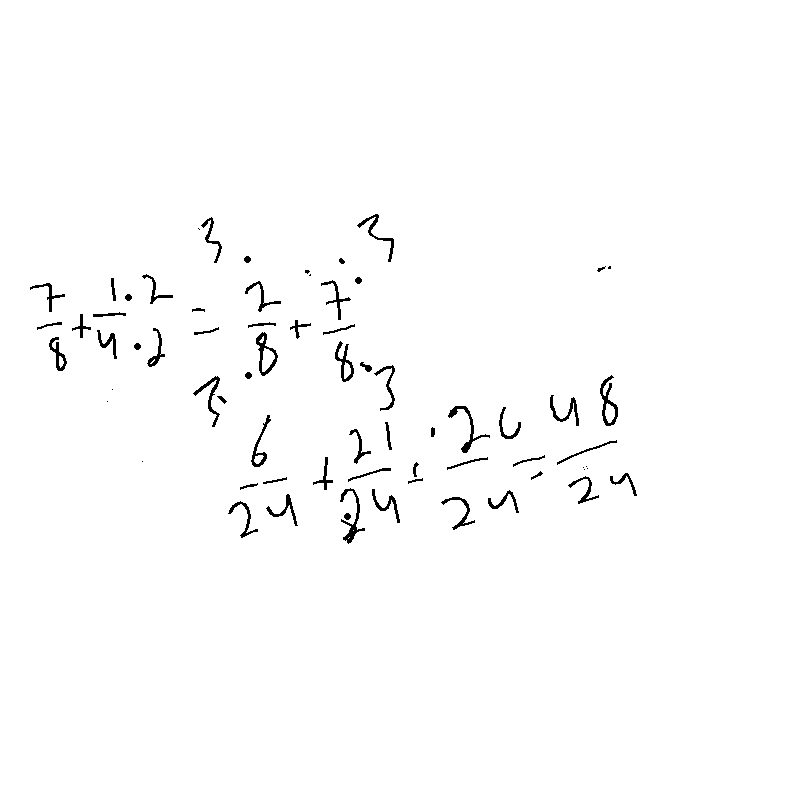 7/8 + 1·2/4·2 = 3·2/3·8 + 7·3/8·3
6/24 + 21/24 + 20/24 = 48/24